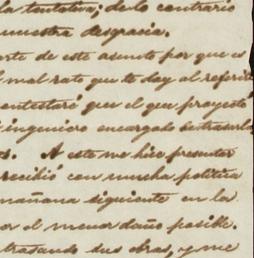 la tentativa; de lo contrario
nuestra desgracia.
arte de este asunto por que es
l mal rato que te doy al referir
ontestaré que el que proyectó
ingeniero encargado de
s. A este me hice presentar
recibió con mucha política
mañana siguiente en la
or el menor daño posible.
tratando sus obras, y me